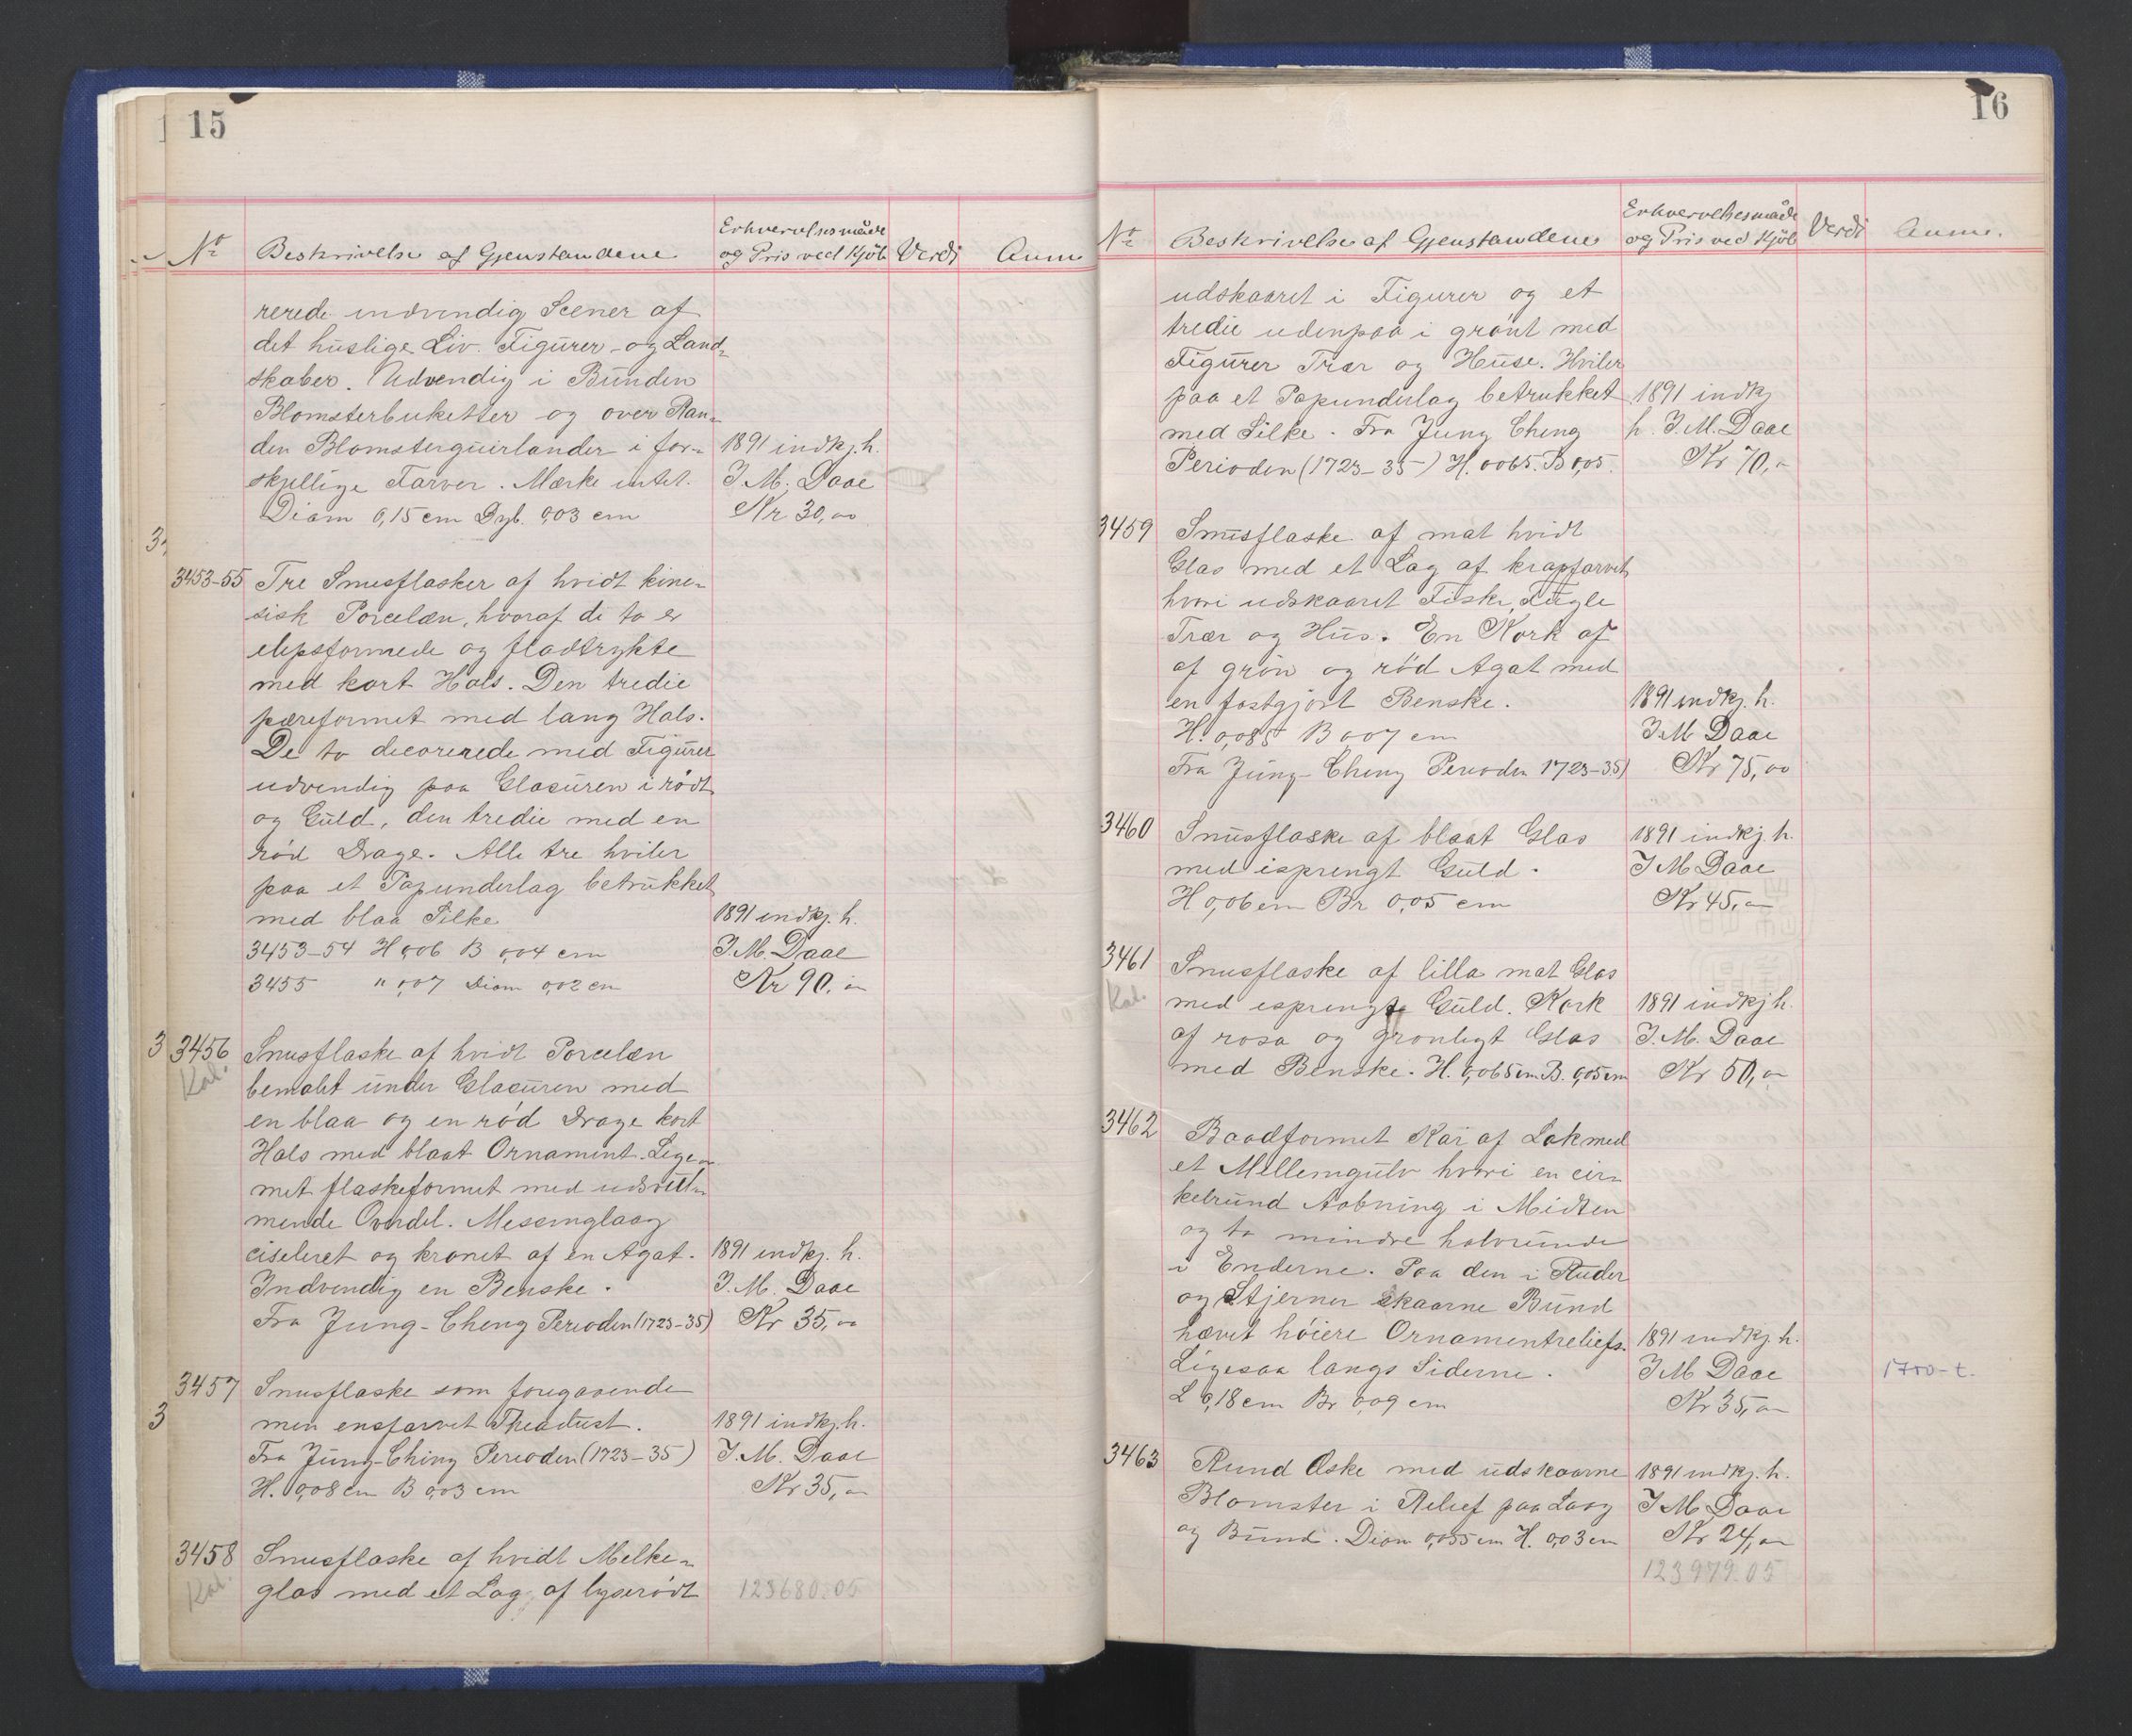 15
Nº Beskrivelse af Gjenstandene Erhvervelsesmåde og Pris ved Kjöb Verdi Anm
rerede indvendig Scener af
det huslige Liv. Figurer- og Land-
skaber. Udvendig i Bunden
Blomsterbuketter og over Ran-
den Blomsterguirlander i for- 1891 indkj. h.
skjellige Farver. Mærke intet. J. M. Daae
Diam 0,15 cm Dyb. 0,03 cm Kr 30,00
3453-55 Tre Snusflasker af hvidt kine-
sisk Porcelæn, hvoraf de to er
elipsformede og fladtrykte
med kort Hals. Den tredie
pæreformet med lang Hals.
De to decorerede med Figurer
udvendig paa Glasuren i rødt
og Guld, den tredie med en
rød Drage. Alle tre hviler
paa et Papunderlag betrukket
med blaa Silke 1891 indkj. h.
3453-54 H 0,06 B 0,04 cm J. M. Daae
3455 " 0,07 Diam 0,02 cm Kr 90,00
3456 Snusflaske af hvidt Porcelæn
Kat. bemalet under Glasuren med
en blaa og en rød Drage kort
Hals med blaat Ornament. Lege-
met flaskeformet med udsvul-
mende Overdel. Messinglaag
ciseleret og kronet af en Agat. 1891 indkj. h.
Indvendig en Benske. J. M. Daae
Fra Jung-Cheng Perioden (1723-35) Kr 35,00
3457 Snusflaske som foregaaende
men ensfarvet Theadust. 1891 indkj. h.
Fra Jung-Ching Perioden (1723-35) J. M. Daae
H. 0,08 cm B 0,03 cm Kr 35,00
3458 Snusflaske af hvidt Melke-
Kat. glas med et Lag af lyserødt 123680.05
16
Nº Beskrivelse af Gjenstandene Erhvervelsesmåde og Pris ved Kjöb Verdi Anm.
udskaaret i Figurer og et
tredie udenpaa i grønt med
Figurer Trær og Huse. Hviler
paa et Papunderlag betrukket 1891 indkj
med Silke. Fra Jung Cheng h. J. M. Daae
Perioden (1723-35) H. 0065. B 0,05. Kr 70,00
3459 Snusflaske af mat hvidt
Glas med et Lag af krapfarvet
hvori udskaaret Fiske, Fugle
Trær og Hus. En Kork af
af grøn og rød Agat med
en fastgjort Benske. 1891 indkj. h.
H. 0,085 B 0,07 cm J. M Daae
Fra Jung-Cheng Perioden 1723-35) Kr 75,00
3460 Snusflaske af blaat Glas 1891 indkj. h.
med isprengt Guld. J M Daae
H 0,06 cm Br 0,05 cm Kr 45,00
3461 Snusflaske af lilla mat Glas
Kat. med isprengt Guld. Kork 1891 indkj h.
af rosa og grønligt Glas J. M. Daae
med Benske. H. 0,065 cm B. 0,05 cm Kr 50,00
3462 Baadformet Kar af Lak med
et Mellemgulv hvori en cir-
kelrund Aabning i Midten
og to mindre halvrunde
i Enderne. Paa den i Ruder
og Stjerner skaarne Bund
hævet høiere Ornamentreliefs. 1891 indkj. h.
Ligesaa langs Siderne. J M Daae 1700-t.
L 0,18 cm Br 0,09 cm Kr 35,00
3463 Rund Æske med udskaarne 1891 indkj. h.
Blomster i Relief paa Laag J M Daae
og Bund. Diam 0,055 cm H. 0,03 cm Kr 24,00
123979.05